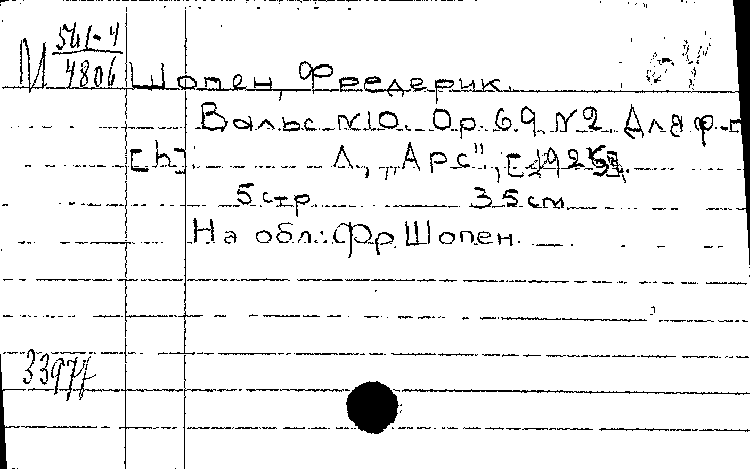 М 561-4
4806
Шопен, Фредерик.
Вальс №10. Op. 69 №2 Для ф-п
[h] Л., „Арс",
5 стр 35 см
На обл.: Фр Шопен.